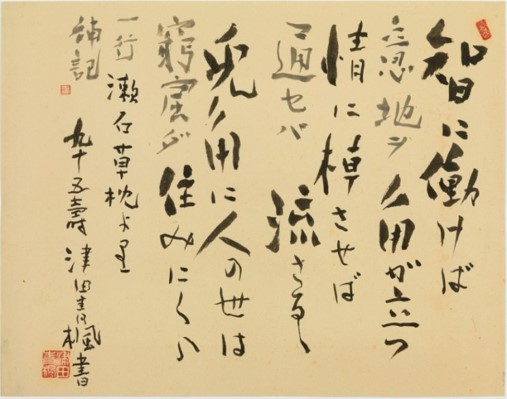 智に働けば
意地ヲ 角が立つ
情に棹させば
通セバ 流さる
兎角に人の世は
窮屈ダ 住みにくい
一行 漱石草枕より
補記
九十五寿 津田青楓書